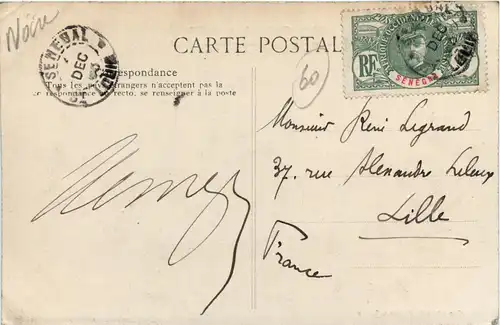 CARTE POSTAL
SENEGAL
DEC
respondance
Tous les pays étrangers n'acceptent pas la
correspondance au recto, se renseigner à la poste
60
RF
SENEGAL
DEC
Monsieur René Legrand
37, rue Alexandre Leleux
Lille
France